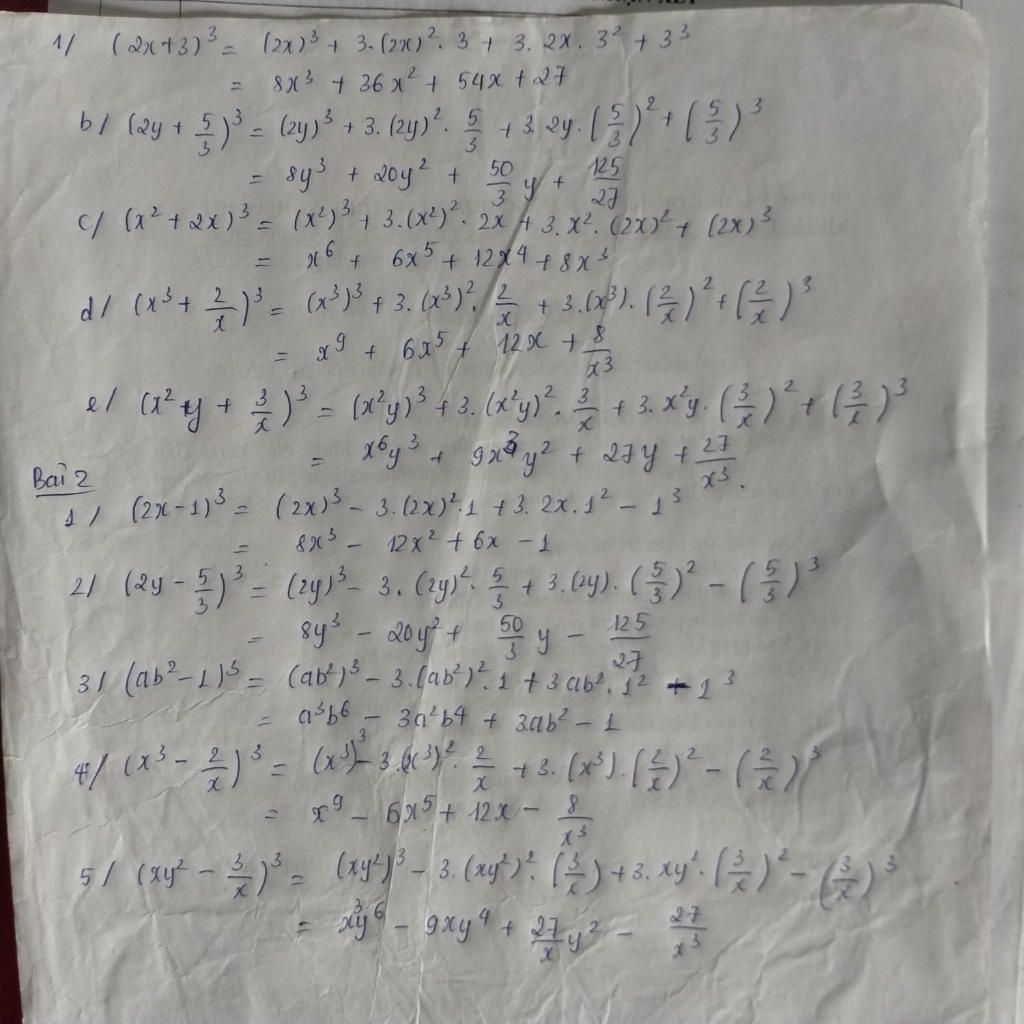 1/ (2x+3)³ = (2x)³ + 3.(2x)².3 + 3.2x.3² + 3³
= 8x³ + 36x² + 54x + 27
b/ (2y + 5/3)³ = (2y)³ + 3.(2y)².5/3 + 3.2y.(5/3)² + (5/3)³
= 8y³ + 20y² + 50/3 y + 125/27
c/ (x² + 2x)³ = (x²)³ + 3.(x²)².2x + 3.x².(2x)² + (2x)³
= x⁶ + 6x⁵ + 12x⁴ + 8x³
d/ (x³ + 2/x)³ = (x³)³ + 3.(x³)².2/x + 3.(x³).(2/x)² + (2/x)³
= x⁹ + 6x⁵ + 12x + 8/x³
e/ (x²y + 3/x)³ = (x²y)³ + 3.(x²y)².3/x + 3.x²y.(3/x)² + (3/x)³
= x⁶y³ + 9x³y² + 27y + 27/x³.
Bài 2
1/ (2x-1)³ = (2x)³ - 3.(2x)².1 + 3.2x.1² - 1³
= 8x³ - 12x² + 6x - 1
2/ (2y - 5/3)³ = (2y)³ - 3.(2y)².5/3 + 3.(2y).(5/3)² - (5/3)³
= 8y³ - 20y² + 50/3 y - 125/27
3/ (ab² - 1)³ = (ab²)³ - 3.(ab²)².1 + 3ab².1² - 1³
= a³b⁶ - 3a²b⁴ + 3ab² - 1
4/ (x³ - 2/x)³ = (x³)³ - 3.(x³)².2/x + 3.(x³).(2/x)² - (2/x)³
= x⁹ - 6x⁵ + 12x - 8/x³
5/ (xy² - 3/x)³ = (xy²)³ - 3.(xy²)².(3/x) + 3.xy².(3/x)² - (3/x)³
= x³y⁶ - 9xy⁴ + 27/x y² - 27/x³